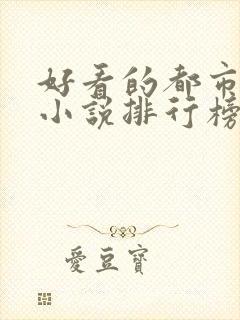 好看的都市
小説排行榜
愛豆寶